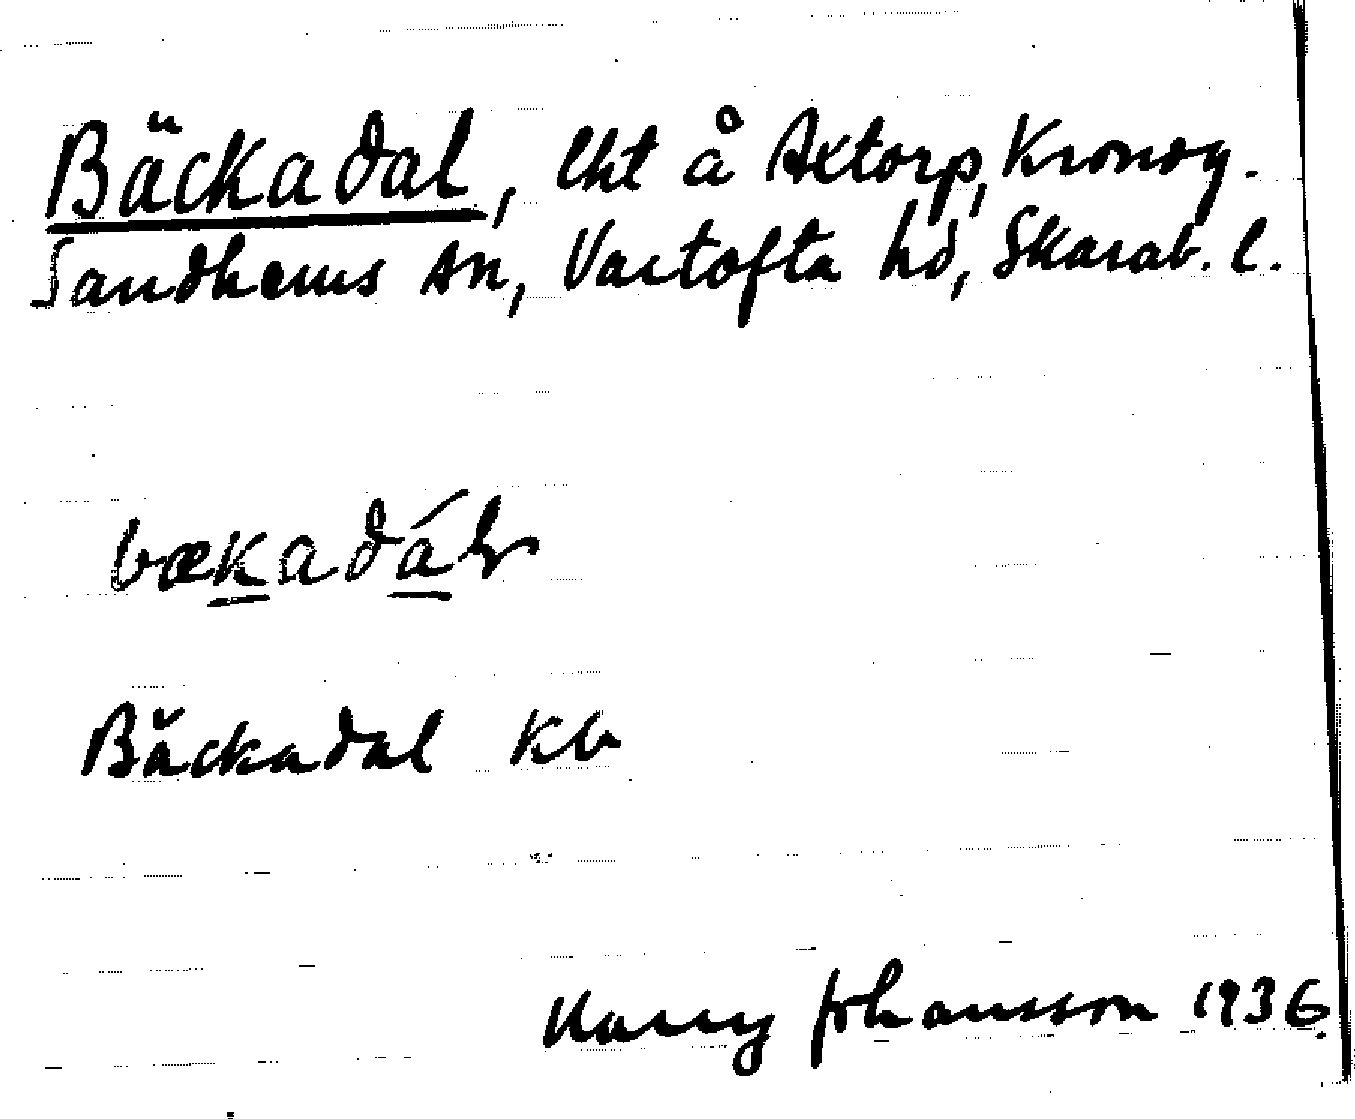 Bäckadal, lht å Axtorp, Kronog.
Sandhems sn, Vartofta hd, Skarab. l.
bækadál
Bäckadal kb
Harry Johansson 1936.